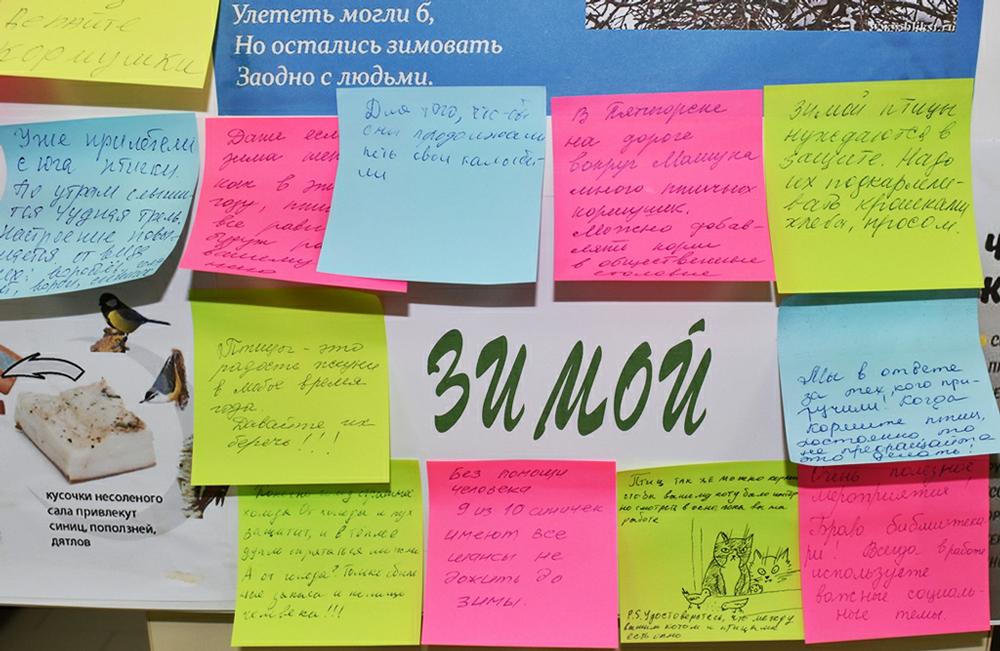 Делайте
кормушки
Улететь могли б,
Но остались зимовать
Заодно с людьми.
Уже прилетели
с юга птички.
По утрам слыши-
тся чудная трель.
Настроение повы-
шается от
Даже есл
зима
как в эт
году,
все равн
будут
Для того, что-бы
они продолжали
петь свои колыбе-
ли
В Пятигорске
на дороге
вокруг Машука
много птичьих
кормушек.
Можно добав-
лять корм
в общественные
столовые
Зимой птицы
нуждаются в
защите. Надо
их подкармли-
вать крошками
хлеба, просом.
Птицы - это
радость жизни
в любое время
года.
Давайте их
беречь!!!
ЗИМОЙ
Мы в ответе
за тех, кого при-
ручили! Когда
кормите птиц,
постоянно, то
не прекращайте
это делать!
кусочки несоленого
сала привлекут
синиц, поползней,
дятлов
холода. От холода и пух
защитит, и в тёплое
А от голода? Только
и помощь
человека!!!
Без помощи
человека
9 из 10 синичек
имеют все
шансы не
дожить до
зимы.
Птиц так же можно
чтобы вашему коту было
но смотреть в окно пока вы на
работе
P.S. Удостоверьтесь, что между
вашим котом и птицами
есть окно
Очень полезное
мероприятие!
Браво библиотека
ри! Всегда в работе
используете
важные социаль-
ные темы.